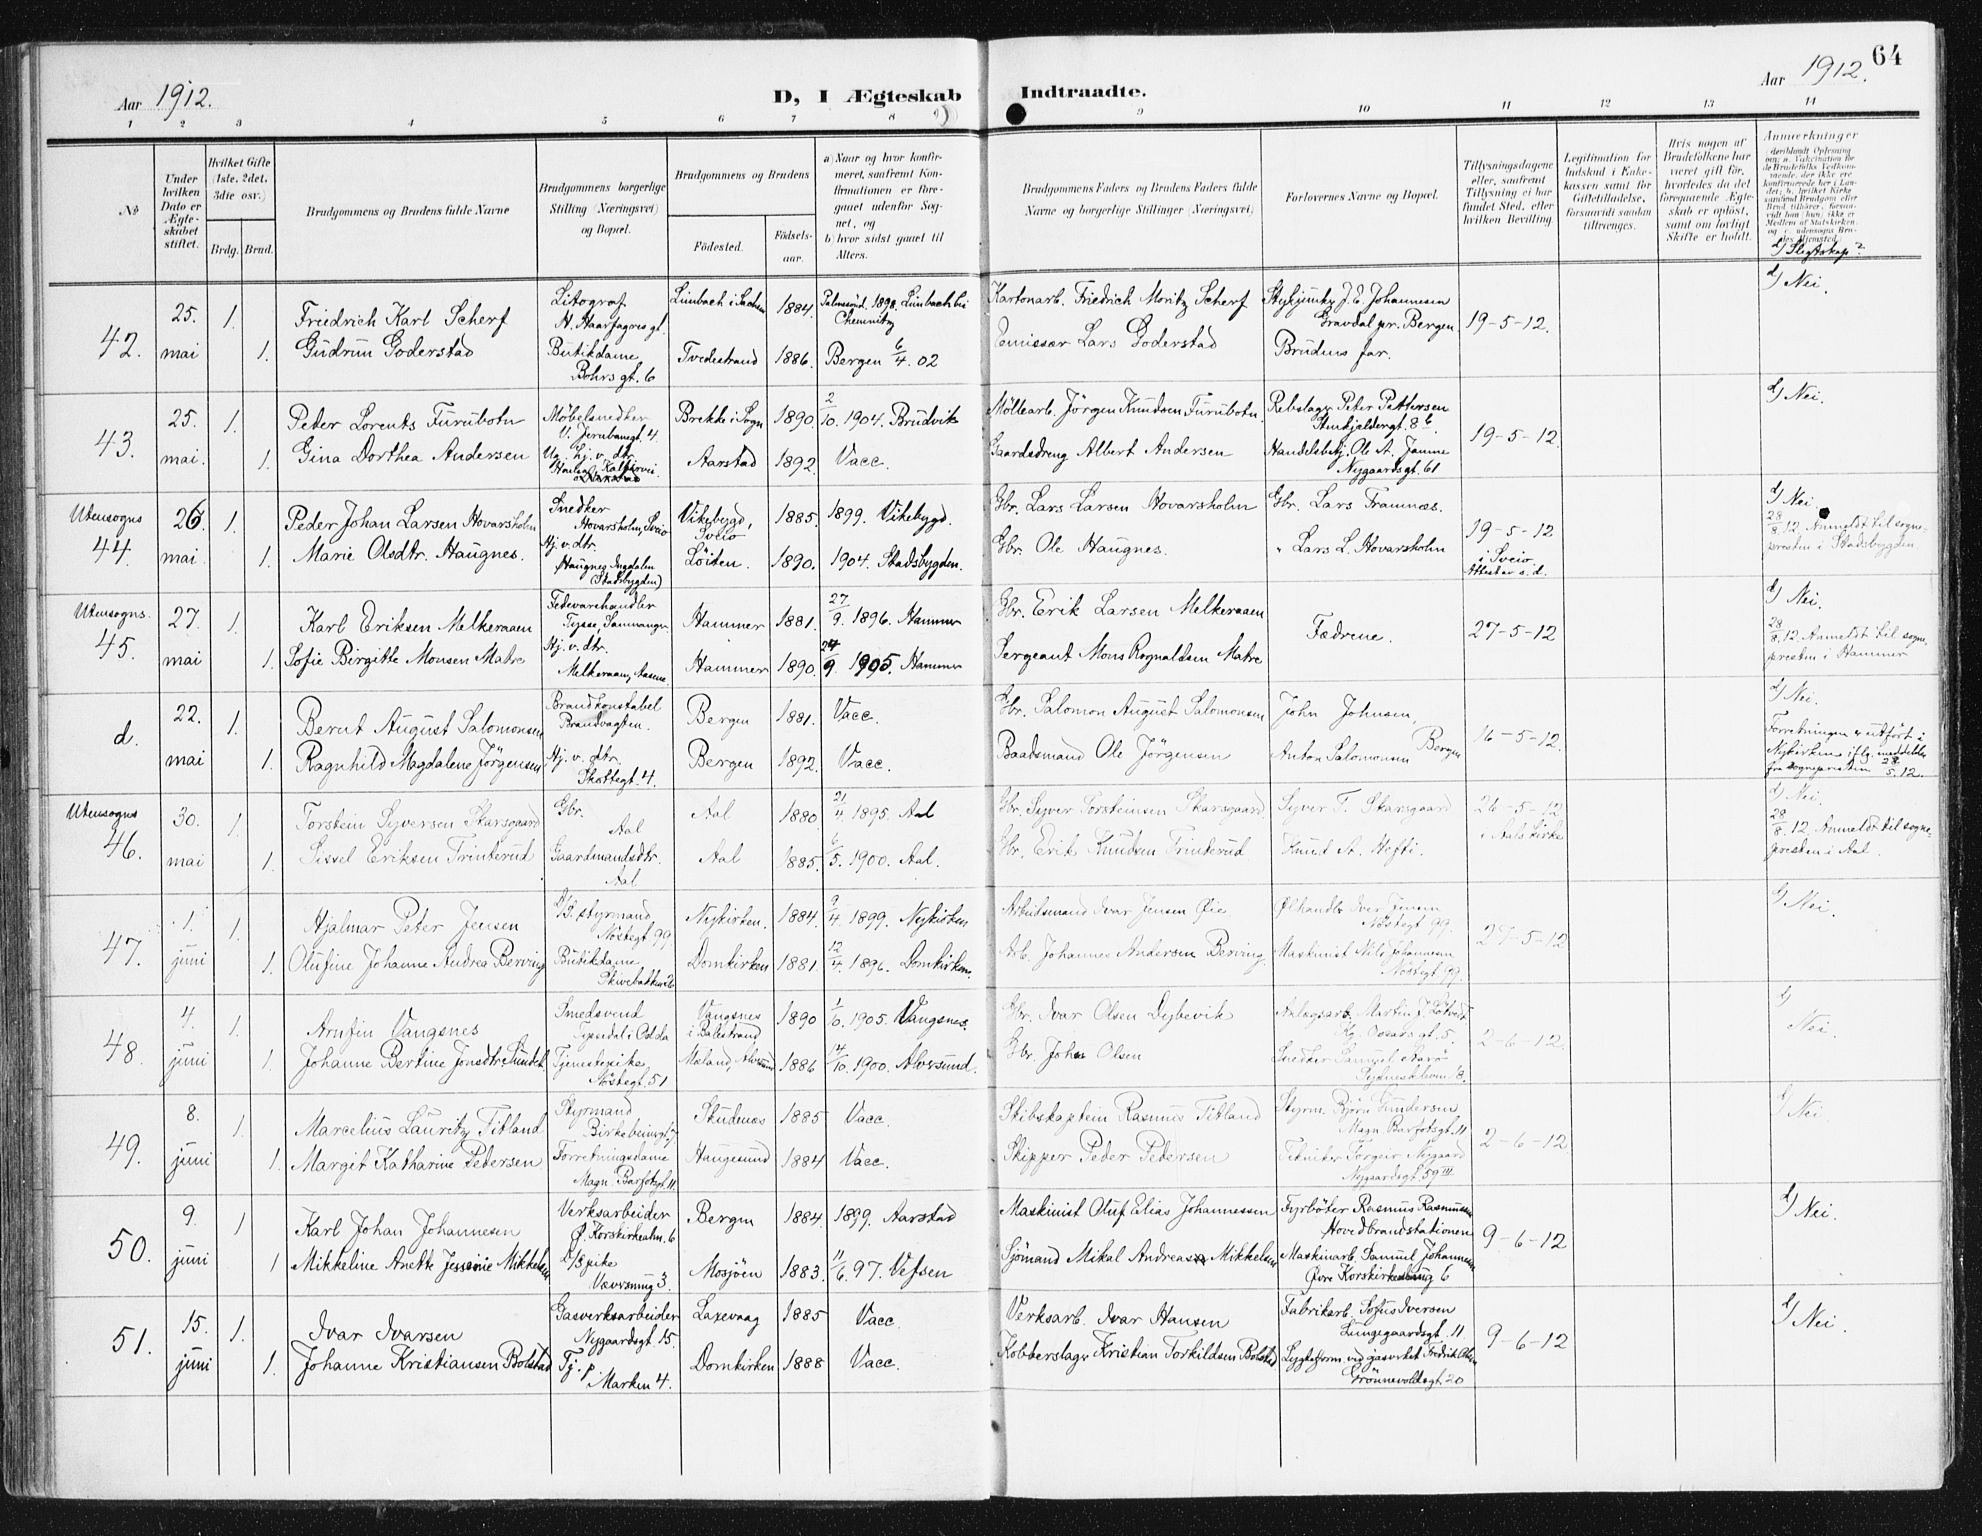 64
Aar 1912.
D, I Ægteskab Indtraadte.
Aar 1912.
1 2 3 4 5 6 7 8 9 10 11 12 13 14
№
Under hvilken Dato er Ægteskabet stiftet.
Hvilket Gifte (1ste, 2det, 3die osv.)
Brdg. Brud.
Brudgommens og Brudens fulde Navne
Brudgommens borgerlige Stilling (Næringsvei) og Bopæl.
Brudgommens og Brudens
Fødested.
Fødselsaar.
a) Naar og hvor konfirmeret, saafremt Konfirmationen er foregaaet udenfor Sognet, og
b) hvor sidst gaaet til Alters.
Brudgommens Faders og Brudens Faders fulde Navne og borgerlige Stillinger (Næringsvei)
Forlovernes Navne og Bopæl.
Tillysningsdagene eller, saafremt Tillysning ei har fundet Sted, efter hvilken Bevilling.
Legitimation for Indskud i Enkekassen samt for Giftetilladelse, forsaavidt saadan tiltrænges.
Hvis nogen af Brudefolkene har været gift før, hvorledes da det foregaaende Ægteskab er opløst, samt om lovligt Skifte er holdt.
Anmerkninger
d/ Slegtskap?
42.
25. mai
1.
Friedrich Karl Scherf
Litograf H. Haarfagres gt.
Limbach i Sachsen
1884.
Limbach bei Chemnitz
Kartonarb. Friedrich Moritz Scherf
J. E. Johannesen Gravdal pr. Bergen
19-5-12.
d/ Nei.
1.
Gudrun Goderstad
Butikdame Bohrs gt. 6
Tvedestrand
1886.
Bergen 6/4 02
Emissær Lars Goderstad
Brudens far.
43.
25. mai.
1.
Peder Lorents Furubotn
Møbelsnedker V. Jernbanegt. 4.
Brekke i Sogn
1890.
2/10. 1904. Brudvik
Møllearb. Jörgen Knudsen Furubotn
Rebslager Peter Pettersen Stenkjeldergt. 8b.
19-5-12.
d/ Nei.
1.
Gina Dorthea Andersen
Ug. hj. v. dtr.
Aarstad
1892.
Vacc.
Gaardsdreng Albert Andersen
Handelsbetj. Ole A. Janne Nygaardsgt. 61
Utensogns
44.
26. mai
1.
Peder Johan Larsen Hovarsholm
Snedker Hovarsholm, Sveio
Vikebygd, Sveio
1885.
1899. Vikebygd.
Gbr. Lars Larsen Hovarsholm
Gbr. Lars Framnæs.
19-5-12 i Sveio. Attest av s. d.
d/ Nei.
28/8.12. Anmeldt til sognepresten i Stadsbygden
1.
Marie Olsdtr. Haugnes.
Hj. v. dtr. Haugnes (Stadsbygden)
Löiten.
1890.
1904. Stadsbygden.
Gbr. Ole Haugnes.
" Lars L. Hovarsholm
Utensogns.
45.
27. mai
1.
Karl Eriksen Melkeraaen
Fedevarehandler Tysse, Samnanger
Hammer
1881.
27/9. 1896. Hammer
Gbr. Erik Larsen Melkeraaen
Fædrene.
27-5-12
d/ Nei.
28/8.12. Anmeldt til sognepresten i Hammer
1.
Sofie Birgitte Monsen Matre
Hj. v. dtr. Melkeraaen, Aasene.
Hammer
1890.
24/9. 1905. Hammer
Sergeant Mons Rognaldsen Matre
d.
22. mai
1.
Bernt August Salomonsen
Brandkonstabel Brandvagten.
Bergen
1881.
Vacc.
Gbr. Salomon August Salomonsen
John Johnsen,
16-5-12.
d/ Nei.
Forretningen er utført i Nykirken iflg. meddelelse fra sognepresten 28/5.12.
1.
Ragnhild Magdalene Jørgensen
Hj. v. dtr. Skottegt. 4.
Bergen
1892.
Vacc.
Baadsmand Ole Jörgensen
Anton Salomonsen Bergen
Utensogns
46.
30. mai
1.
Torstein Syversen Skarsgaard
Gbr. Aal
Aal
1880.
21/4. 1895. Aal
Gbr. Syver Torsteinsen Skarsgaard.
Syver T. Skarsgaard
26-5-12 i Aals kirke
d/ Nei.
28/8.12. Anmeldt til sognepresten i Aal.
1.
Sissel Eriksen Trinterud
Gaardmandsdtr. Aal
Aal
1885.
6/5. 1900. Aal.
Gbr. Erik Knudsen Trinterud
Knud A. Hefti.
47.
1. juni
1.
Hjalmar Peter Jensen
styrmand Nöstegt 99
Nykirken.
1884.
9/4. 1899. Nykirken
Arbeidsmand Ivar Jensen Öie
Ölhandler Iver Jensen Nöstegt 99.
27-5-12
d/ Nei.
1.
Olufine Johanne Andrea Berving
Butikdame Skivebakken 26
Domkirken
1881.
12/4. 1896. Domkirken.
Arb. Johannes Andersen Berving.
Maskinist Nils Johannesen Nöstegt 99.
48.
4. juni
1.
Arnfin Vangsnes
Smedsvend Tyssedal i Odda
Vangsnes i Balestrand
1890
1/10. 1905. Vangsnes.
Gbr. Ivar Olsen Dybevik
Martin J. Kg. Oscars gt. 5.
2-6-12.
d/ Nei.
1.
Johanne Bertine Jonsdtr. Sundet.
Tjenestepike Nöstegt. 51
Mæland, Alversund
1886
14/10. 1900. Alversund.
Gbr. Johs Olsen
Snedker Samuel
49.
8. juni
1.
Marcelius Lauritz Titland
Styrmand Birkebeinergt. 7
Skudenæs
1885
Vacc.
Skibskaptein Rasmus Titland
Styrm. Björn Gundersen Magn. Barfotsgt. 11
2-6-12
d/ Nei
1.
Margit Katharine Pedersen
Forretningsdame Magn. Barfotsgt. 11.
Haugesund
1884
Vacc.
Skipper Peder Pedersen
Tekniker Torgeir Nygaard Nygaardsgt. 59 III
50.
9. juni
1
Karl Johan Johannesen
Verksarbeider Ø. Korskirkealm. 6
Bergen
1884.
1899. Aarstad
Maskinist Oluf Elias Johannessen
Fyrbøter Rasmus Rasmussen Hovedbrandstationen
9-6-12
d/ Nei.
1
Mikkeline Anette Jessine Mikkelsen
pike Vævrsmug 3.
Mosjöen
1883.
11/6. 97. Vefsen
Sjömand Mikal Andreas Mikkelsen
Maskinarb. Samuel Johannesen Øvre Korskirkealmug 6
51.
15. juni
1.
Ivar Ivarsen
Gasverksarbeider Nygaardsgt. 15.
Laxevaag
1885
Vacc.
Verksarb. Ivar Hansen
Fabrikarb. Sofus Iversen Lungegaardsgt. 11
9-6-12
d/ Nei.
1.
Johanne Kristiansen Bolstad
Tj. p. i Marken 4.
Domkirken
1888
Vacc.
Kobberslager Kristian Torkildsen Bolstad
ved gasverket Fredrik Olsen Grönnevoldsgt. 20